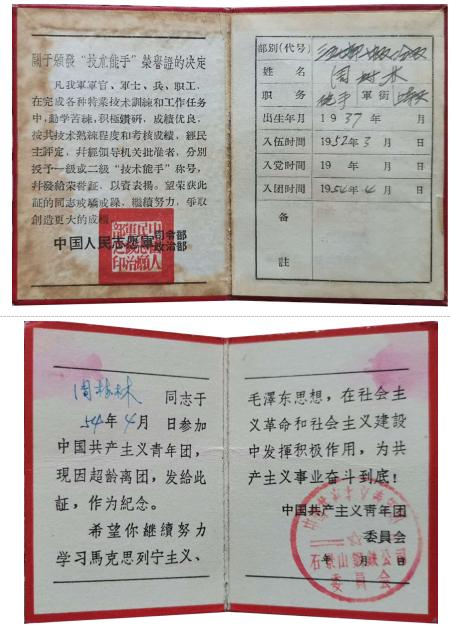 關于頒發“技术能手”榮誉證的决定
凡我軍軍官、軍士、兵、职工,
在完成各种特業技术訓練和工作任务
中,勤学苦練,积極鑽研,成績优良,
按其技术熟練程度和考核成績,經民
主評定,幷經領导机关批准者,分別
授予一級或二級“技术能手”称号,
幷發給荣誉証,以資表揚。望荣获此
証的同志戒驕戒躁、繼續努力,争取
創造更大的成績。
中国人民志愿軍司令部
政治部
部別(代号)
姓名 周树林
职务 軍銜
出生年月 1937年 月
入伍时間 1952年3月 日
入党时間 19 年 月 日
入团时間 1954年4月 日
备
註
周树林 同志于
54年4月 日参加
中国共产主义青年团,
现因超龄离团,发给此
証,作为紀念。
希望你繼續努力
学习馬克思列宁主义、
毛泽东思想,在社会主
义革命和社会主义建設
中发揮积极作用,为共
产主义事业奋斗到底!
中国共产主义青年团
委員会
年 月 日
石景山鋼鉄公司
委員会